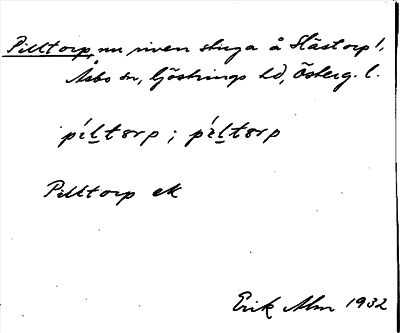 Pilltorp, nu riven stuga å Hästorp 1,
Åsbo sn, Göstrings hd, Österg. l.
píḻtorp ; píḻtorp
Pilltorp ek
Erik Alm 1932